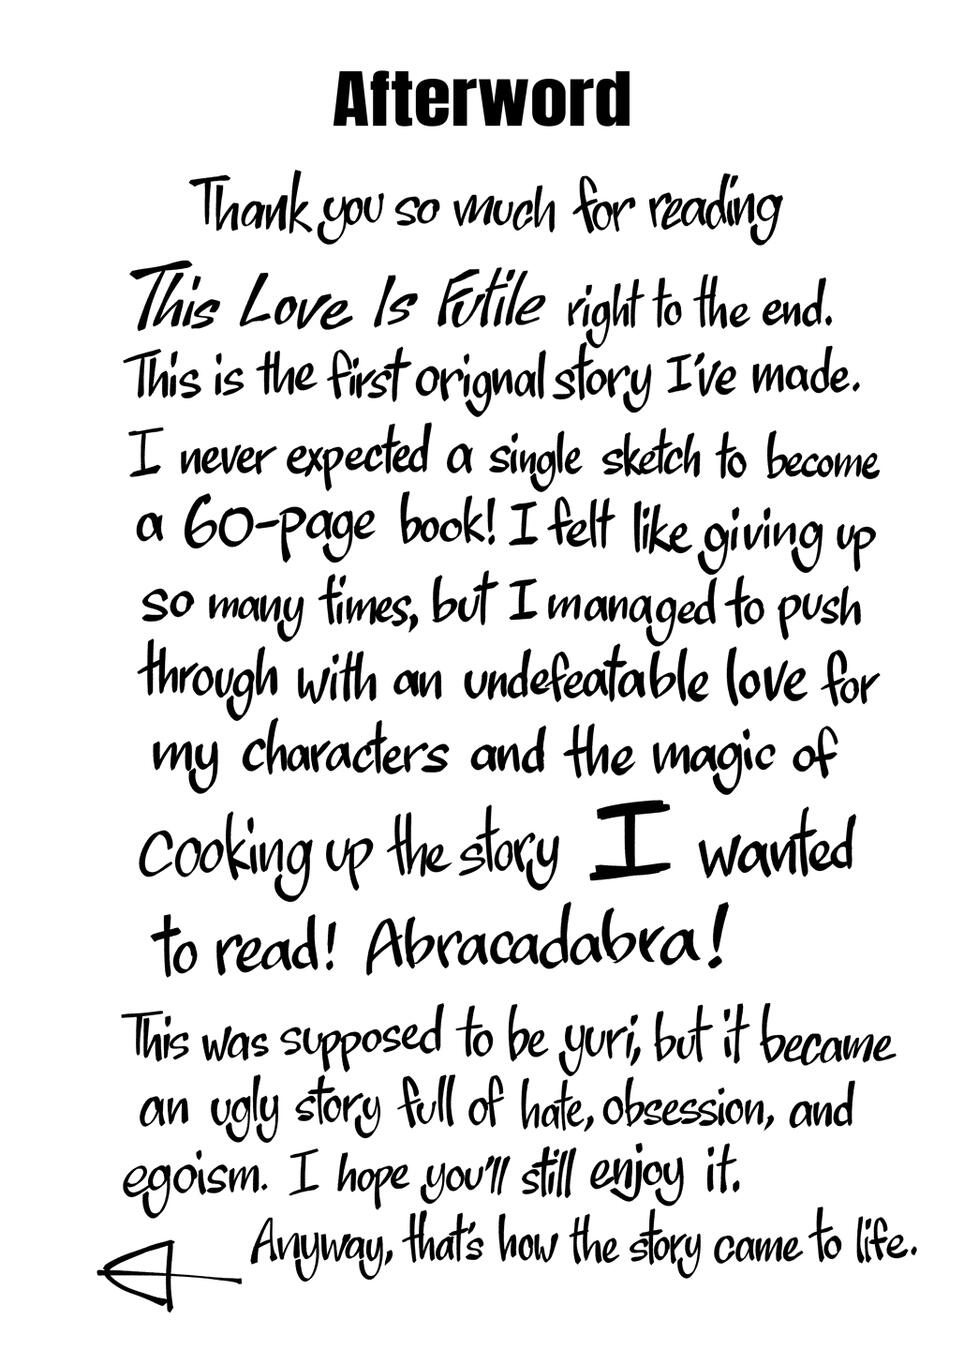 Afterword
Thank you so much for reading
This Love Is Futile right to the end.
This is the first orignal story I've made.
I never expected a single sketch to become
a 60-page book! I felt like giving up
so many times, but I managed to push
through with an undefeatable love for
my characters and the magic of
cooking up the story I wanted
to read! Abracadabra!
This was supposed to be yuri, but it became
an ugly story full of hate, obsession, and
egoism. I hope you'll still enjoy it.
Anyway, that's how the story came to life.